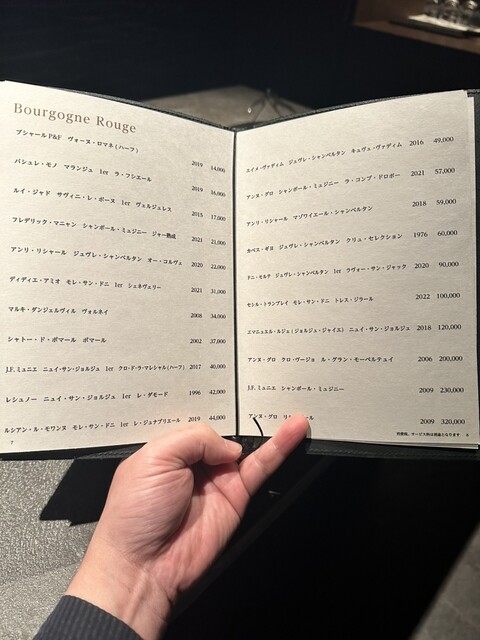 Bourgogne Rouge
ブシャールP&F ヴォーヌ・ロマネ(ハーフ) 2019 14,000
バシュレ・モノ マランジュ 1er ラ・フシエール 2019 16,000
ルイ・ジャド サヴィニ・レ・ボーヌ 1er ヴェルジュレス 2015 17,000
フレデリック・マニャン シャンボール・ミュジニー ジャー熟成 2021 21,000
アンリ・リシャール ジュヴレ・シャンベルタン オー・コルヴェ 2020 22,000
ディディエ・アミオ モレ・サン・ドニ 1er シュネヴェリー 2021 31,000
マルキ・ダンジェルヴィル ヴォルネイ 2008 34,000
シャトー・ド・ポマール ポマール 2002 37,000
J.F.ミュニエ ニュイ・サン・ジョルジュ 1er クロ・ド・ラ・マレシャル(ハーフ) 2017 40,000
レシュノー ニュイ・サン・ジョルジュ 1er レ・ダモード 1996 42,000
ルシアン・ル・モワンヌ モレ・サン・ドニ 1er レ・ジュナヴリエール 2019 44,000
7
エイメ・ヴァディム ジュヴレ・シャンベルタン キュヴェ・ヴァディム 2016 49,000
アンヌ・グロ シャンボール・ミュジニー ラ・コンブ・ドロボー 2021 57,000
アンリ・リシャール マゾワイエール・シャンベルタン 2018 59,000
カペス・ギヨ ジュヴレ・シャンベルタン クリュ・セレクション 1976 60,000
ドニ・モルテ ジュヴレ・シャンベルタン 1er ラヴォー・サン・ジャック 2020 90,000
セシル・トランブレイ モレ・サン・ドニ トレス・ジラール 2022 100,000
エマニュエル・ルジェ(ジョルジュ・ジャイエ) ニュイ・サン・ジョルジュ 2018 120,000
アンヌ・グロ クロ・ヴージョ ル・グラン・モーペルテュイ 2006 200,000
J.F.ミュニエ シャンボール・ミュジニー 2009 230,000
アンヌ・グロ 2009 320,000
8